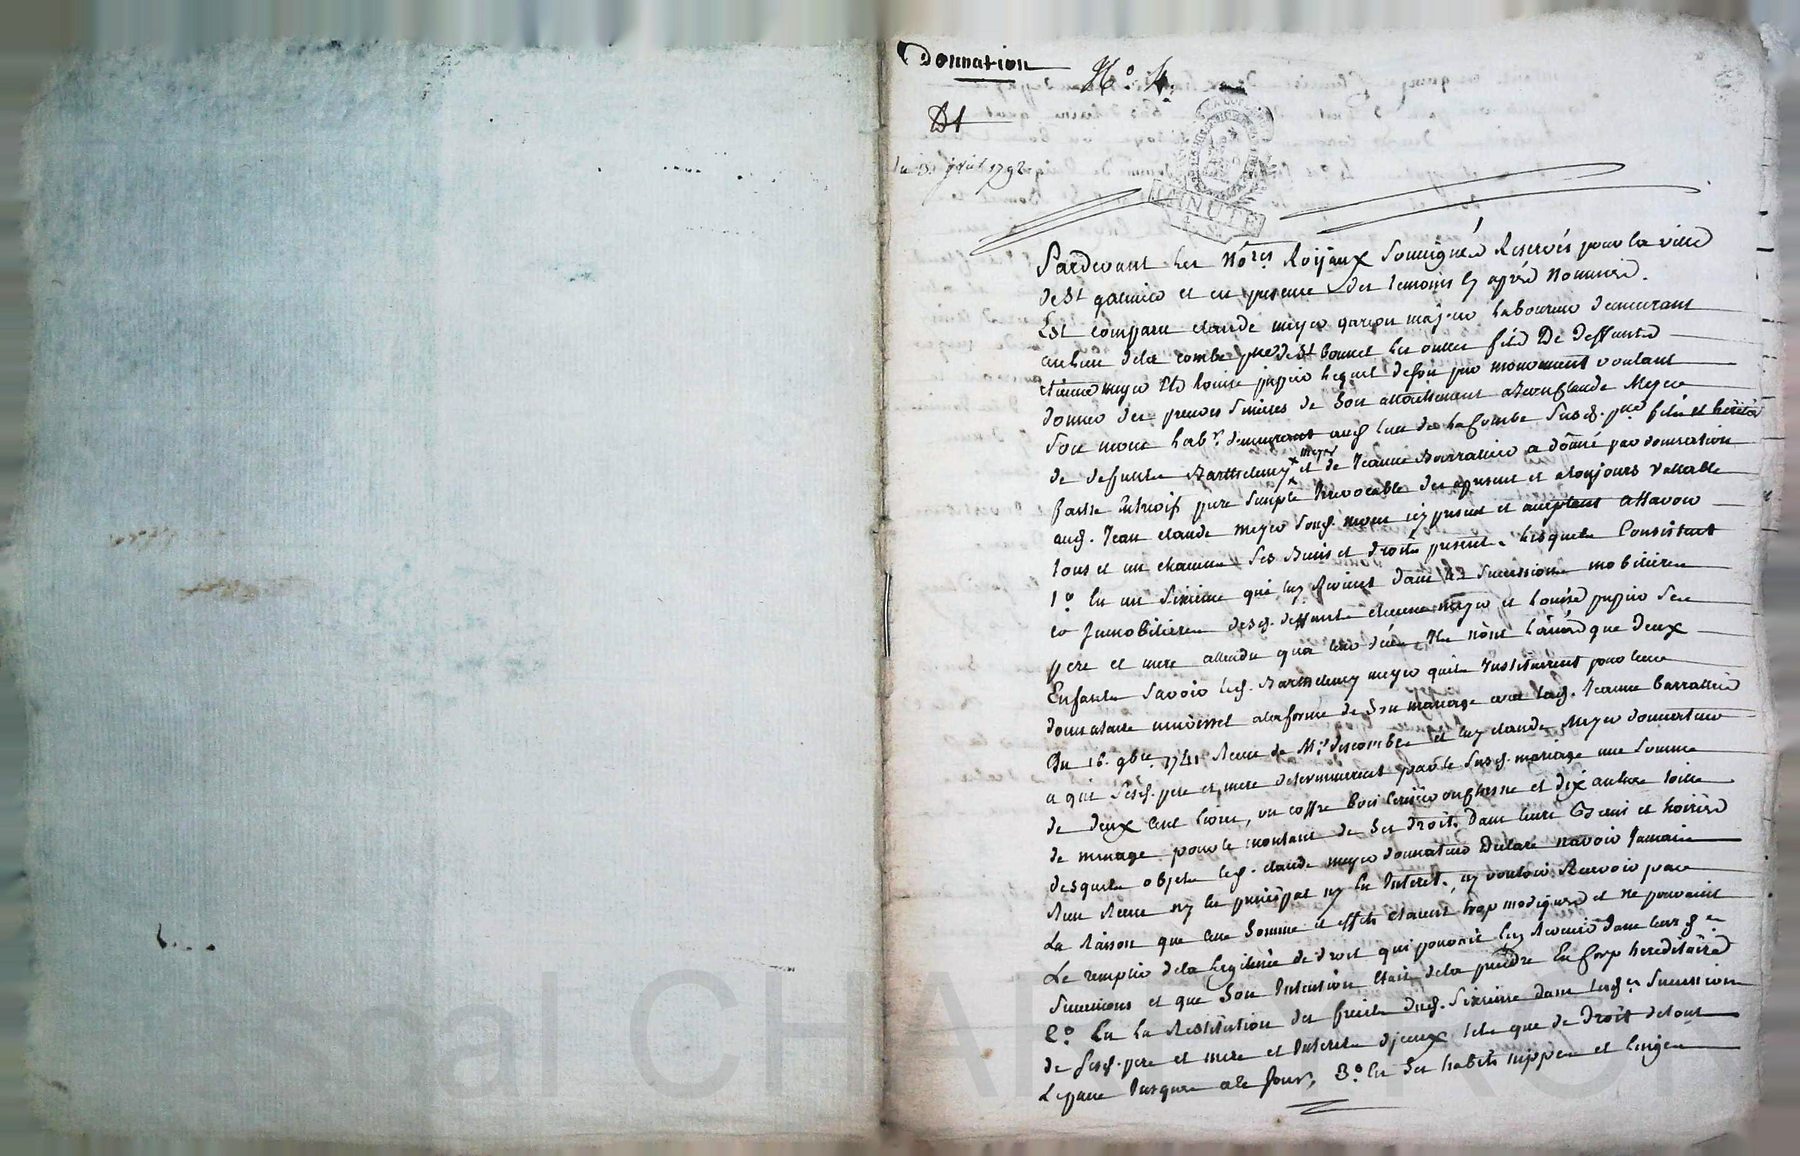 Donnation
N.o 4.
Avril 1792
MINUTE
Pardevant les No.res Royaux Soussignés Reservés pour la ville
de St galmier et en presence des temoins cy aprés Nommés.
Est comparu claude meyer garçon majeur laboureur demeurant
au lieu de la combe p.sse de St bonnet les oulles fils De deffunts
etienne meyer Et louise pupier lequel de son pur mouvement voulant
donner des preuves sinceres de son attachement a Jean Claude Meyer
son neveu lab.r demeurant aud. lieu de la Combe susd. p.sse fils et heritier
de defunt Barthelemy meyer et de Jeanne Barrallier a donné par donnation
faitte entrevifs pure simple Irrevocable des apresent et atoujours vallable
aud. Jean claude meyer sond. neveu icy present et acceptant assavoir
tous et un chacuns ses Biens et droits presents lesquels Consistent
1.o En un Sixieme qui luy Revient dans les successions mobilieres
et Immobilieres desd. deffunts etienne meyer et louise pupier ses
pere et mere attendu qu'a leur décés Ils n'ont laissés que deux
Enfants savoir led. Barthelemy meyer quils Instituerent pour leur
donnataire universel a la forme de son mariage avec lad. Jeanne barrallier
Du 16. 9bre 1741 Recu de M.e descombes et luy claude Meyer donnateur
a qui sesd. pere et mere determinerent par le susd. mariage une somme
de deux cent livres, un coffre bois cerisier ou fresne et dix aulnes toille
de menage pour le montant de ses droits dans leurs Biens et hoiries
desquels objets led. claude meyer donnateur Declare n'avoir Jamais
Rien Recu ny le principal ny les Interets, ny vouloir Recevoir par
La Raison que cette somme et effets etaient trop modiques et ne pouvaient
Le remplir de la legitime de droit qui pouvait luy Revenir dans leursd.es
successions et que son Intention Etait de la prendre En Corp hereditaire
2.o En La Restitution des fruits dud. sixieme dans lesd.es successions
de sesd. pere et mere et Interets d'jceux tels que de Droit detout
Lepassé Jusques a ce Jour, 3.o En ses habits nippes et linges